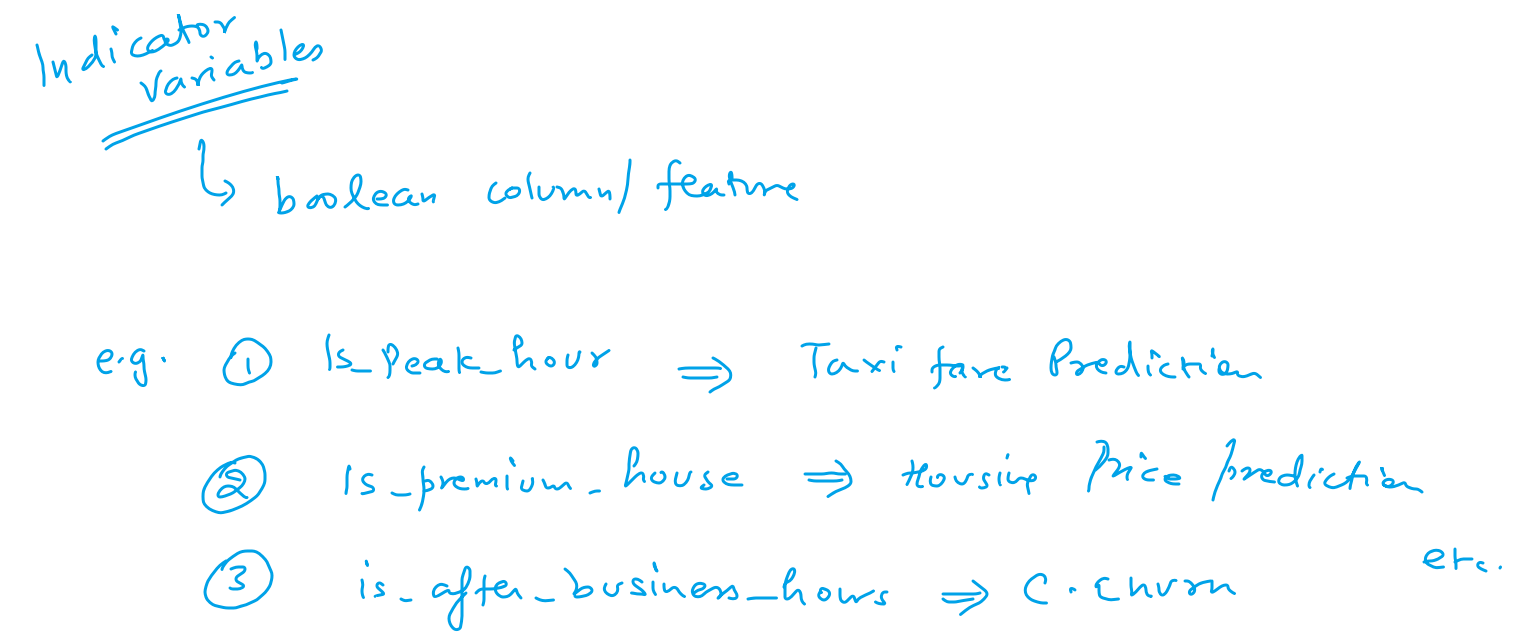 Indicator
Variables
boolean column/feature
e.g. ① Is_Peak_hour ⇒ Taxi fare Prediction
② Is_premium_house ⇒ Housing Price prediction
etc.
③ is_after_business_hours ⇒ C. Churn